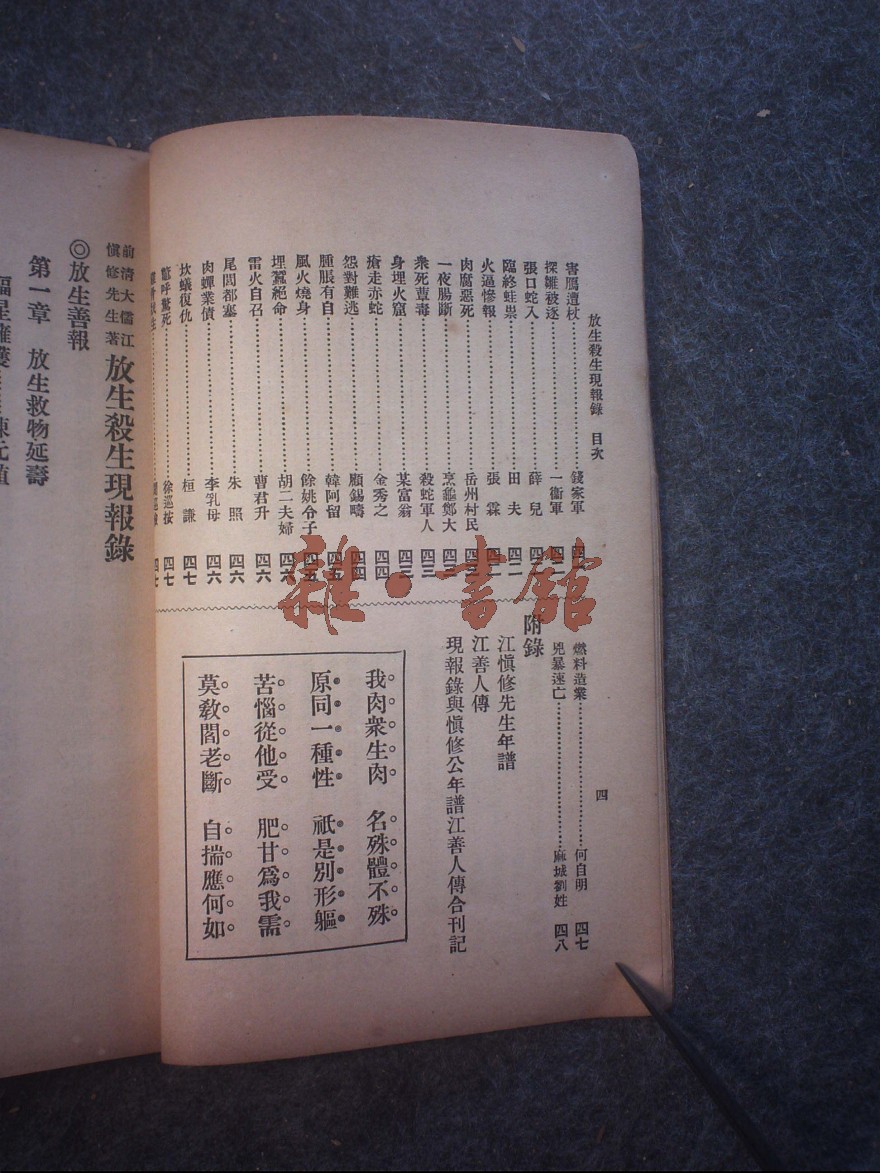 放生殺生現報錄　目次
四
害鴈遭杖 錢家軍
探雛被逐 一衞軍
張口蛇入 薛兒
臨終蛙祟 田夫 四二
火逼慘報 張霖
肉腐惡死 岳州村民
一夜腸斷 烹龜鄭大
衆死蕈毒 殺蛇軍人 四三
身埋火窟 某富翁
瘡走赤蛇 金秀之
怨對難逃 顧錫疇
腫脹有自 韓阿留
風火燒身 餘姚令子
埋蠶絕命 胡二夫婦
雷火自召 曹君升 四六
尾閭都塞 朱照 四六
肉蟬業債 李乳母 四六
坎蟻復仇 桓謙 四七
驚死 徐巡按 四七
燃料造業 何自明 四七
兇暴速亡 麻城劉姓 四八
附錄
江愼修先生年譜
江善人傳
現報錄與愼修公年譜江善人傳合刊記
我肉衆生肉　名殊體不殊
原同一種性　祇是別形軀
苦惱從他受　肥甘爲我需
莫敎閻老斷　自揣應何如
雜·書館
前清大儒江
愼修先生著
放生殺生現報錄
◎放生善報
第一章　放生救物延壽